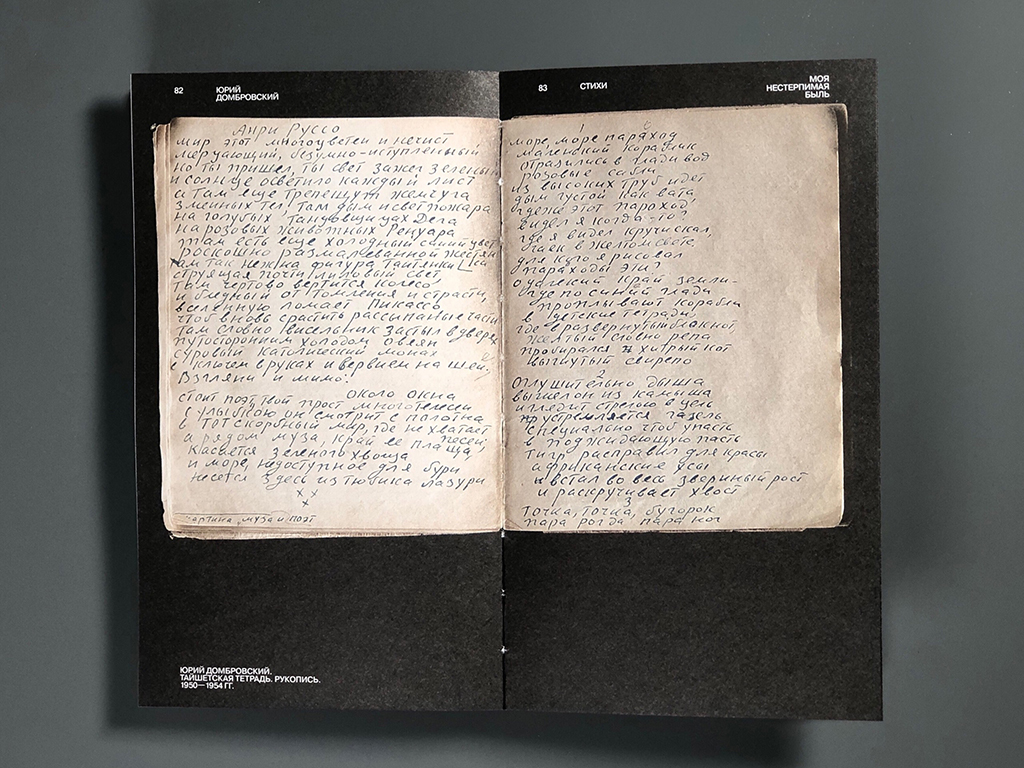 82
ЮРИЙ
ДОМБРОВСКИЙ
Анри Руссо
мир этот многоцветен и нечист
мерцающий, безумно-иступленный
но ты пришел, ты свет зажег зеленый
и солнце осветило каждый лист
а там еще трепещут жемчуга
змеиных тел там дым и свет пожара
на голубых танцовщицах Дега
на розовых животных Ренуара
там есть еще холодный синий цвет
роскошно размалеванной жестян
там так нежна фигура таитянки
струящая почти лиловый свет
там чертово вертится колесо
и бледный от томления и страсти,
вселенную ломает Пикассо
чтоб вновь срастить рассыпанные части
там словно висельник застыл в дверях
потусторонним холодом овеян
суровый католический монах
с ключем в руках и вервием на шее.
Взгляни и мимо!
около окна
стоит поэт, твой прост многотелесен
с улыбкою он смотрит в полотна
в тот скорбный мир, где не хватает
песен,
а рядом муза, край ее плаща
касается зеленого хвоща
и море, недоступное для бури
несется здесь из тюбика лазури
х х
х
картина, муза и поэт
ЮРИЙ ДОМБРОВСКИЙ.
ТАЙШЕТСКАЯ ТЕТРАДЬ. РУКОПИСЬ.
1950—1954 ГГ.
83
СТИХИ
МОЯ
НЕСТЕРПИМАЯ
БЫЛЬ
море, море параход
маленький кораблик
отразились в глади вод
розовые сабли
из высоких труб идет
дым густой как вата,
где же этот параход,
видел я когда-то?
где я видел крик и скал,
чаек в желтом свете
для кого я рисовал
параходы эти?
о далекий край земли-
где по синий глади
проплывают корабли
в детские тетради
где в развернутый блокнот
желтый словно репа
пробирался хитрый кот
выгнутый свирепо
2
оглушительно дыша
вышел он из камыша
и глядит стрелою в цель
устремляется газель
специально чтоб упасть
в поджидающую пасть
тигр расправил для красы
африканские усы
и встал во весь звериный рост
и раскручивает хвост
3
Точка, точка, бугорок
пара рог да пара ног